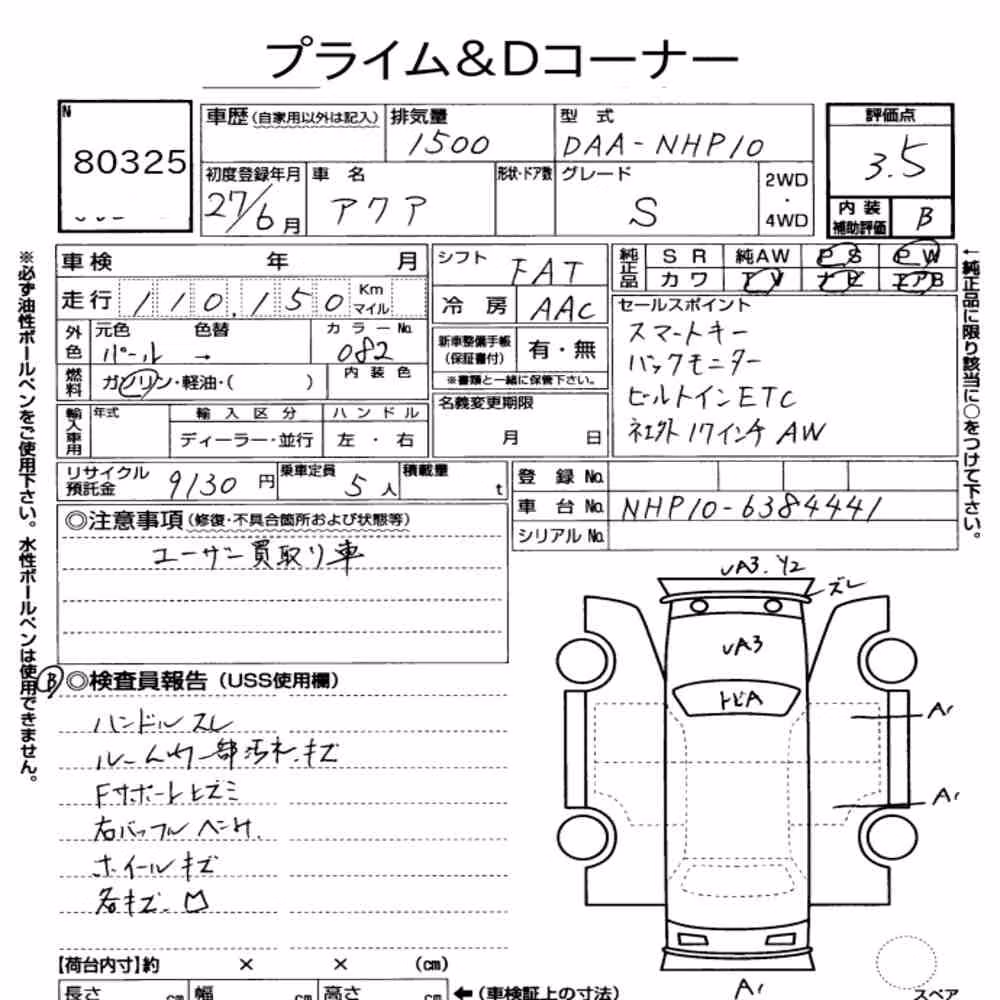 プライム&Dコーナー
N
80325
車歴 (自家用以外は記入)
排気量
1500
型 式
DAA-NHP10
評価点
3.5
初度登録年月
27/6月
車 名
アクア
形状・ドア数
グレード
S
2WD
・
4WD
内 装
補助評価
B
※必ず油性ボールペンをご使用下さい。水性ボールペンは使用できません。
車検 年 月
走行 110,150 Km マイル
外色
元色 色替 カラーNo.
パール → 082
燃料
ガソリン・軽油・( )
内装色
輸入車用
年式
輸入区分
ハンドル
ディーラー・並行
左・右
シフト
FAT
冷房
AAC
新車整備手帳
(保証書付)
有・無
※書類と一緒に保管下さい。
名義変更期限
月 日
純正品
SR 純AW PS PW
カワ TV ナビ エアB
セールスポイント
スマートキー
バックモニター
ビルトインETC
社外17インチAW
←純正品に限り該当に○をつけて下さい。
リサイクル
預託金
9130 円
乗車定員
5 人
積載量
t
登録No.
車台No. NHP10-6384441
シリアルNo.
◎注意事項 (修復・不具合箇所および状態等)
ユーザン買取り車
B ◎検査員報告 (USS使用欄)
ハンドルスレ
ルーム内一部汚れ.キズ
Fサポートヒズミ
右バッフルヘコミ.
ホイールキズ
各キズ.凹
UA3.Y2
ズレ
UA3
トビA
A1
A1
A1
スペア
【荷台内寸】約 × × (cm)
長さ cm 幅 cm 高さ cm ←(車検証上の寸法)